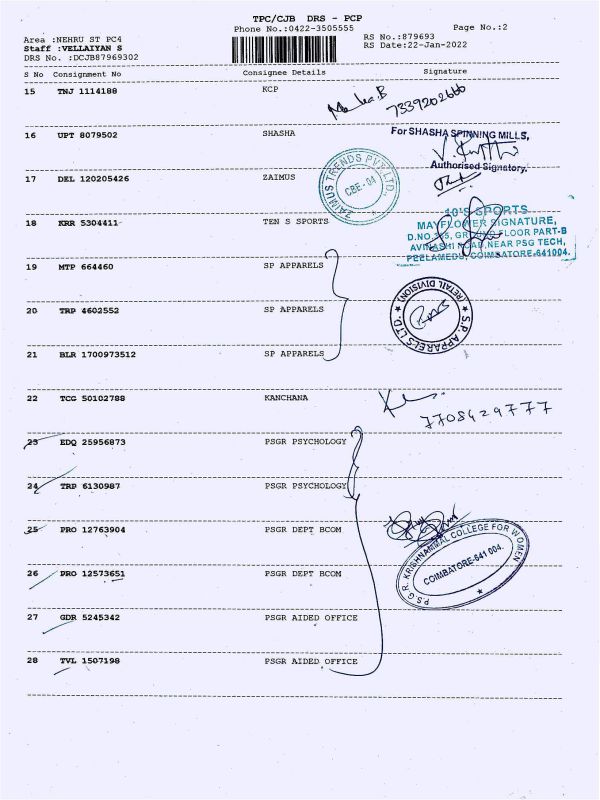 TPC/CJB DRS - PCP
Phone No.:0422-3505555
Page No.:2
Area :NEHRU ST PC4
RS No.:879693
Staff :VELLAIYAN S
RS Date:22-Jan-2022
DRS No. :DCJB87969302
S No Consignment No Consignee Details Signature
15 TNJ 1114188 KCP
7339202666
16 UPT 8079502 SHASHA
For SHASHA SPINNING MILLS,
Authorised Signatory.
17 DEL 120205426 ZAIMUS
ZAIMUS TRENDS PVT. LTD.
CBE-04
18 KRR 5304411 TEN S SPORTS
10'S SPORTS
MAYFLOWER SIGNATURE,
D.NO. GROUND FLOOR PART-B
AVINASHI ROAD, NEAR PSG TECH,
PEELAMEDU, COIMBATORE-641004.
19 MTP 664460 SP APPARELS
20 TRP 4602552 SP APPARELS
S.P. APPARELS LTD.
(RETAIL DIVISION)
21 BLR 1700973512 SP APPARELS
22 TCG 50102788 KANCHANA
7708429777
23 EDQ 25956873 PSGR PSYCHOLOGY
24 TRP 6130987 PSGR PSYCHOLOGY
25 PRO 12763904 PSGR DEPT BCOM
26 PRO 12573651 PSGR DEPT BCOM
P.S.G.R. KRISHNAMMAL COLLEGE FOR WOMEN
COIMBATORE-641 004.
27 GDR 5245342 PSGR AIDED OFFICE
28 TVL 1507198 PSGR AIDED OFFICE